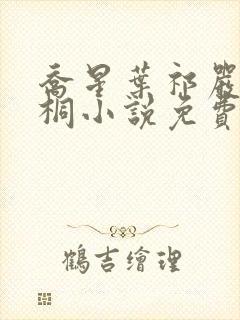 喬星葉祁嚴
桐小說免費
鶴吉繪理